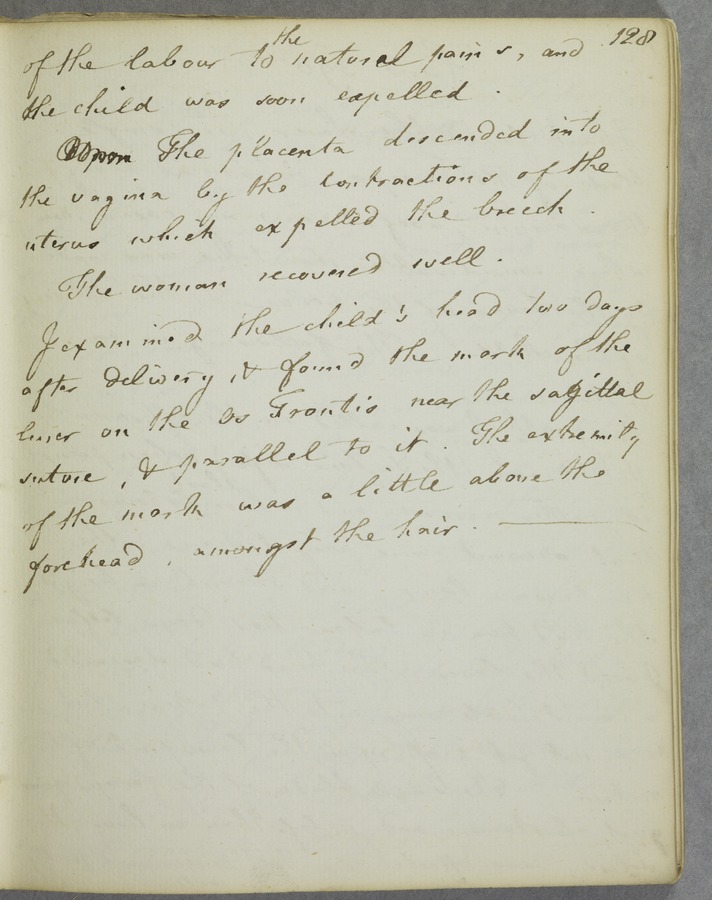 128
of the labour to the natural pains, and
the child was soon expelled.
Upon The placenta descended into
the vagina by the contractions of the
uterus which expelled the breech.
The woman recovered well.
I examined the child's head two days
after delivery, & found the mark of the
lever on the Os Frontis near the sagittal
suture, & parallel to it. The extremity
of the mark was a little above the
forehead, amongst the hair.